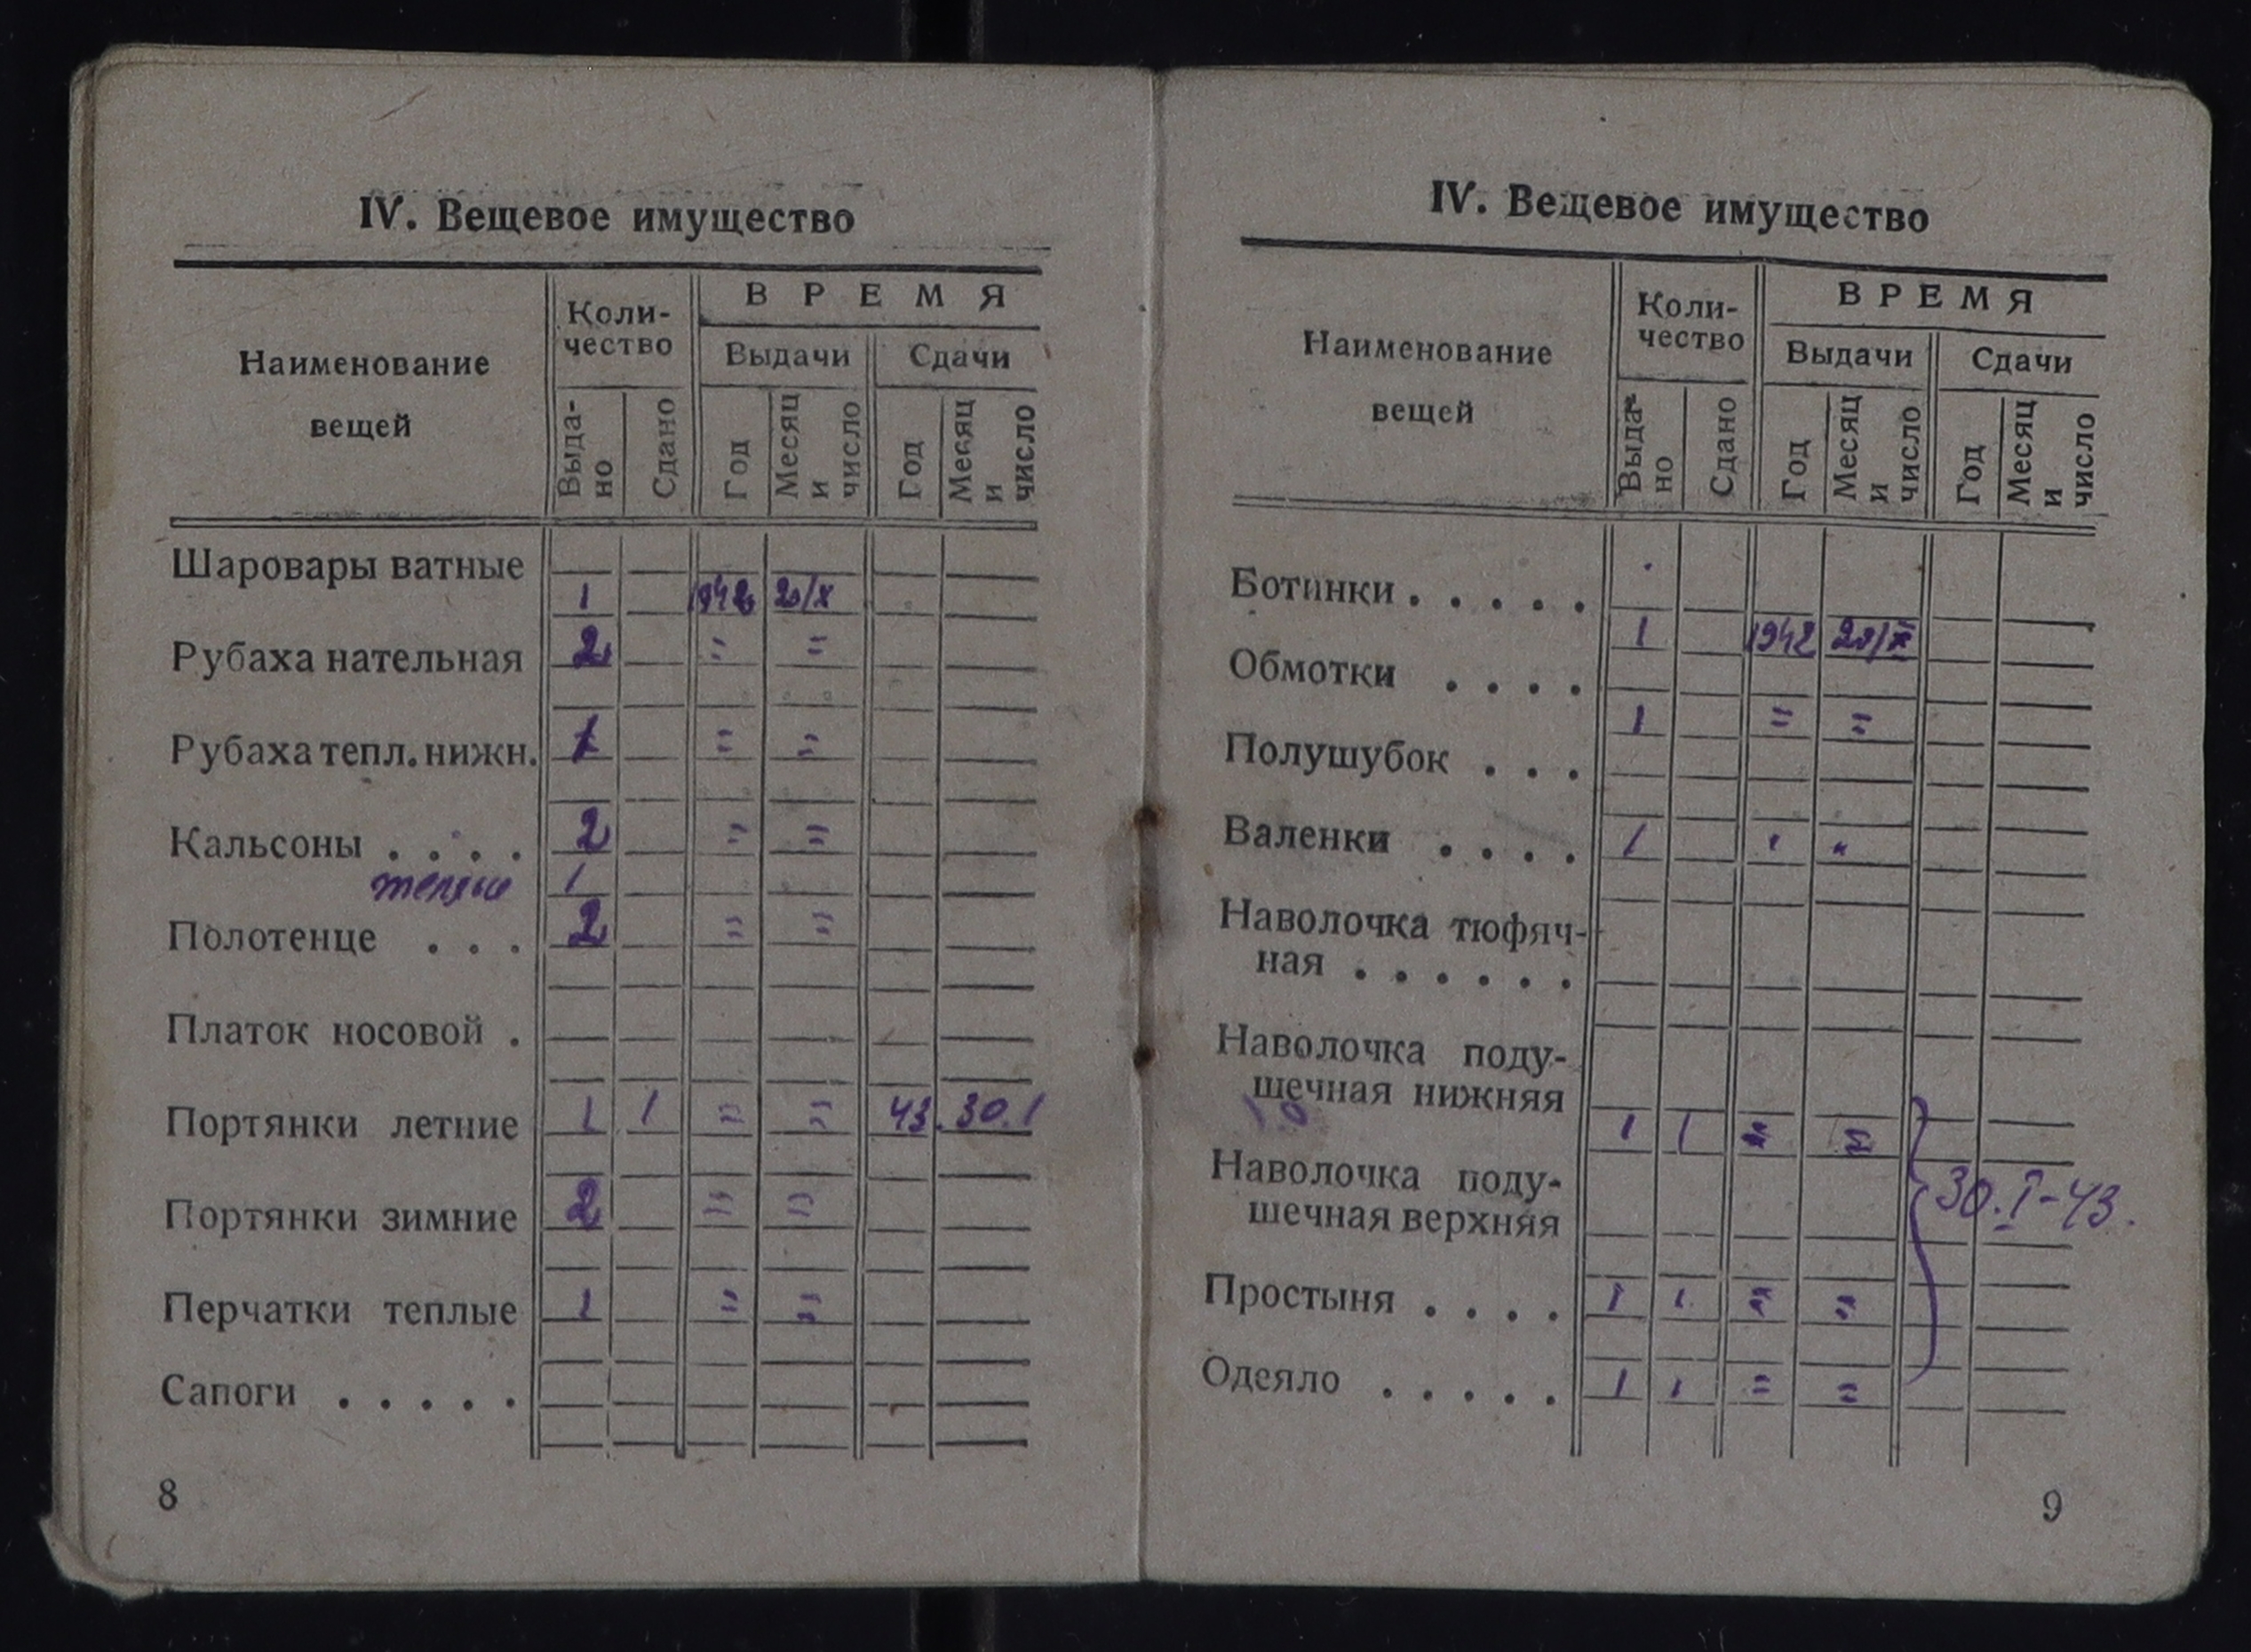 IV. Вещевое имущество
Наименование вещей
Коли-
чество
ВРЕМЯ
Выдачи
Сдачи
Выда-
но
Сдано
Год
Месяц
и
число
Год
Месяц
и
число
Шаровары ватные
1 1942 20/X
Рубаха нательная 2 " "
Рубаха тепл. нижн. " "
Кальсоны . . . . 2 " "
теплые 1
Полотенце . . . 2 " "
Платок носовой .
Портянки летние 1 1 " " 43. 30.1
Портянки зимние 2 " "
Перчатки теплые 1 " "
Сапоги . . . . .
8
IV. Вещевое имущество
Наименование вещей
Коли-
чество
ВРЕМЯ
Выдачи
Сдачи
Выда-
но
Сдано
Год
Месяц
и
число
Год
Месяц
и
число
Ботинки . . . . .
1 1942 20/X
Обмотки . . . .
1 " "
Полушубок . . .
Валенки . . . . 1 " "
Наволочка тюфяч-
ная . . . . . .
Наволочка поду-
шечная нижняя
1 1 " "
Наволочка поду-
шечная верхняя
30.I-43.
Простыня . . . . 1 1 " "
Одеяло . . . . . 1 1 " "
9